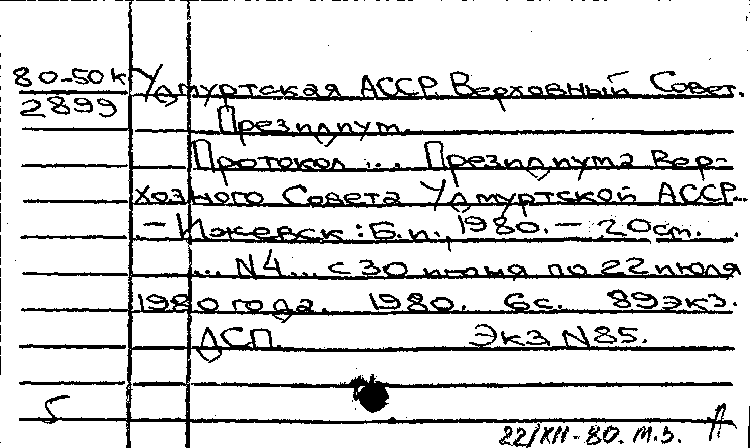 80-50к
2899
Удмуртская АССР. Верховный Совет.
Президиум.
Протокол ... Президиума Вер-
ховного Совета Удмуртской АССР...
– Ижевск: Б.и., 1980. – 20см.
... N4... с 30 июня по 22 июля
1980 года. 1980. 6с. 89экз.
ДСП. Экз N85.
5
22/XII-80. М.З.